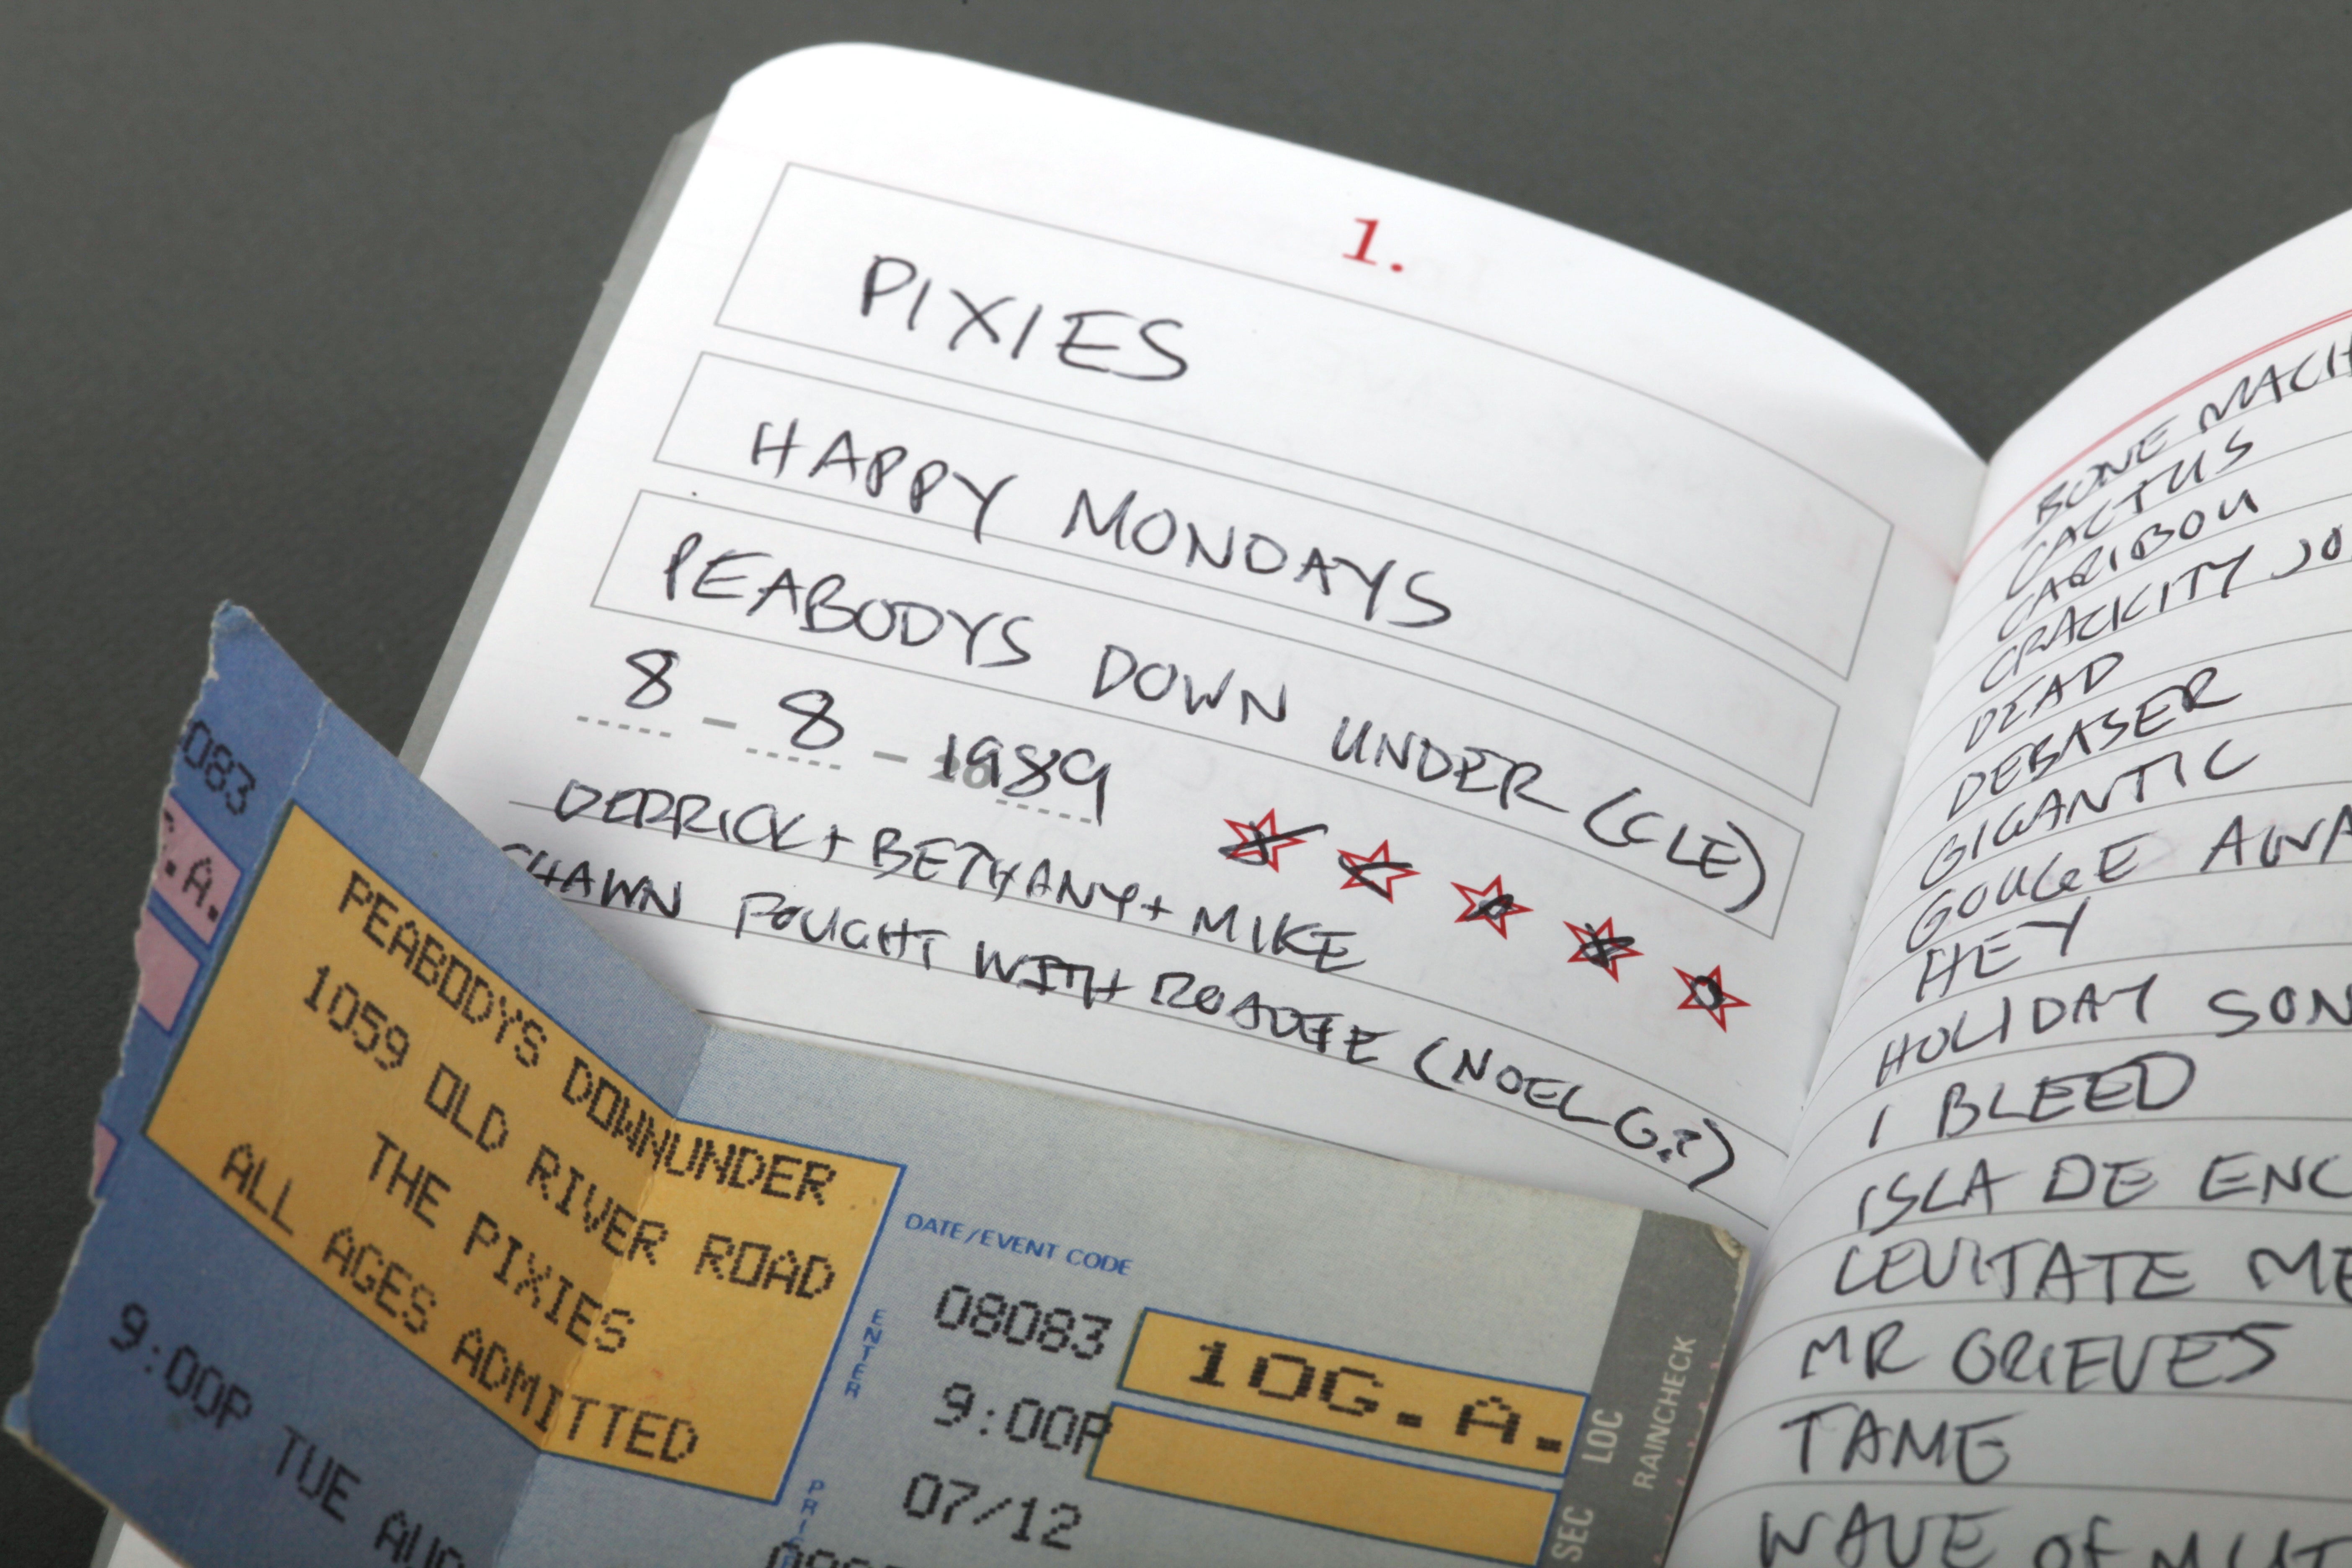 1.
PIXIES
HAPPY MONDAYS
PEABODYS DOWN UNDER (CLE)
8 - 8 - 1989
DERRICK + BETHANY + MIKE
SHAWN FOUGHT WITH ROADIE (NOEL G?)
BONE MACH
CACTUS
CARIBOU
CRACKITY JO
DEAD
DEBASER
GIGANTIC
GOUGE AWA
HEY
HOLIDAY SON
I BLEED
ISLA DE ENC
LEVITATE ME
MR GRIEVES
TAME
WAVE OF MUT
083
.A.
PEABODYS DOWNUNDER
1059 OLD RIVER ROAD
THE PIXIES
ALL AGES ADMITTED
9:00P TUE AUG
DATE/EVENT CODE
08083
9:00P
07/12
ENTER
10G.A.
SEC LOC
RAINCHECK